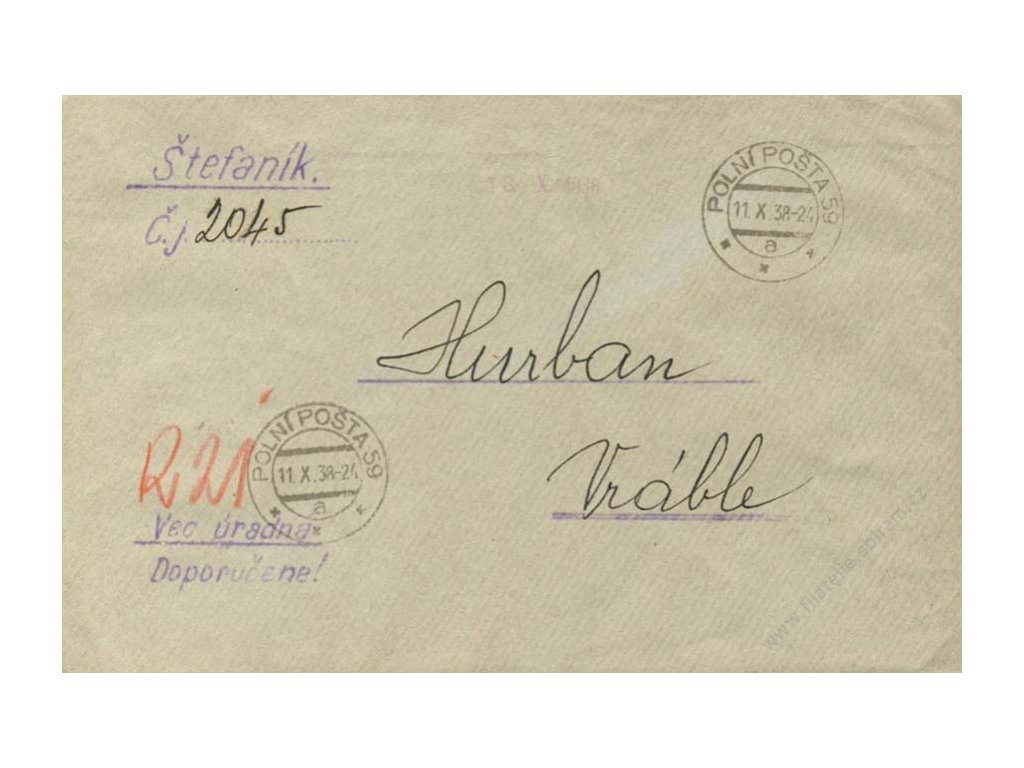 Štefaník.
Č.j. 2045
POLNÍ POŠTA 59
11. X. 38-24
a
Hurban
Vráble
R 21
POLNÍ POŠTA 59
11. X. 38-24
a
Vec úradna
Doporučene!
www.filatelie.sberam.cz